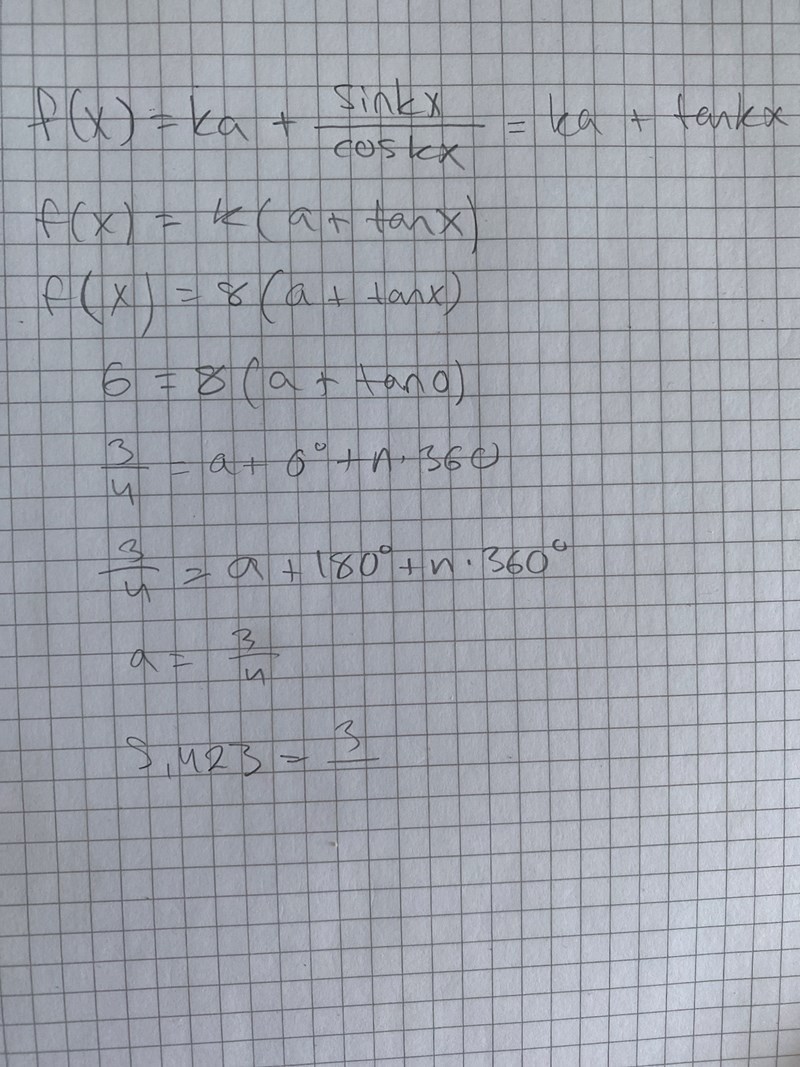 f(x) = ka + sinkx/coskx = ka + tankx
f(x) = k(a + tanx)
f(x) = 8(a + tanx)
6 = 8(a + tan0)
3/4 = a + 0° + n·360
3/4 = a + 180° + n·360°
a = 3/4
8,423 = 3/